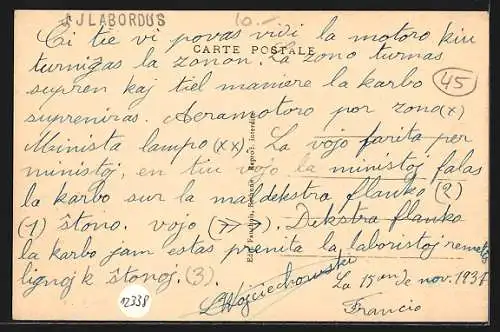 J LABORDUS
10.-
Ĉi tie vi povas vidi la motoro kiu
CARTE POSTALE
turnigas la zonon. La zono turnas
supren kaj tiel maniere la karbo
45
supreniras. Aeramotoro por zono (x)
Minista lampo (xx). La vojo farita per
ministoj, en tiu vojo la ministoj falas
la karbo sur la maldekstra flanko (2)
(1) ŝtono. vojo (>>>). Dekstra flanko
la karbo jam estas prenita la laboristoj remetas
lignoj k ŝtonoj. (3).
Wojciechowski
La 15an de nov. 1937
12338
Francio